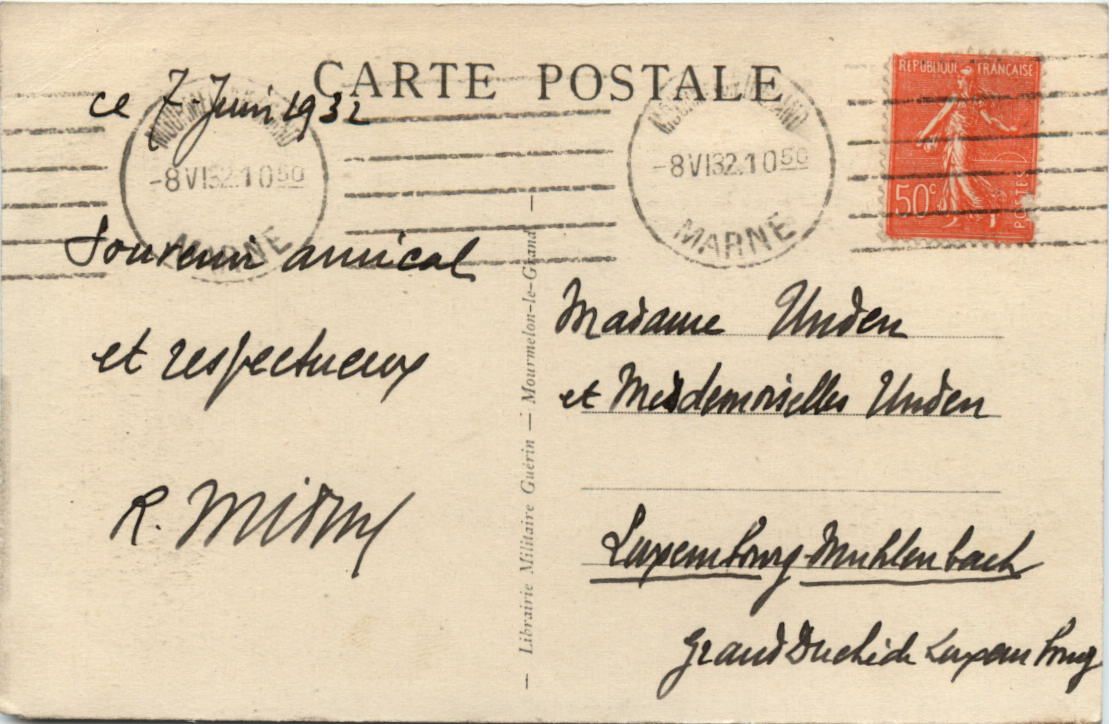 CARTE POSTALE
ce 7 Juin 1932
-8 VI32.10 50
MARNE
-8 VI32.10 50
MARNE
REPUBLIQUE FRANÇAISE
50c
POSTES
Souvenir amical
et respectueux
R.
Librairie Militaire Guérin — Mourmelon-le-Grand
Madame Unden
et Mesdemoiselles Unden
Luxembourg-Muhlenbach
Grand Duché de Luxembourg